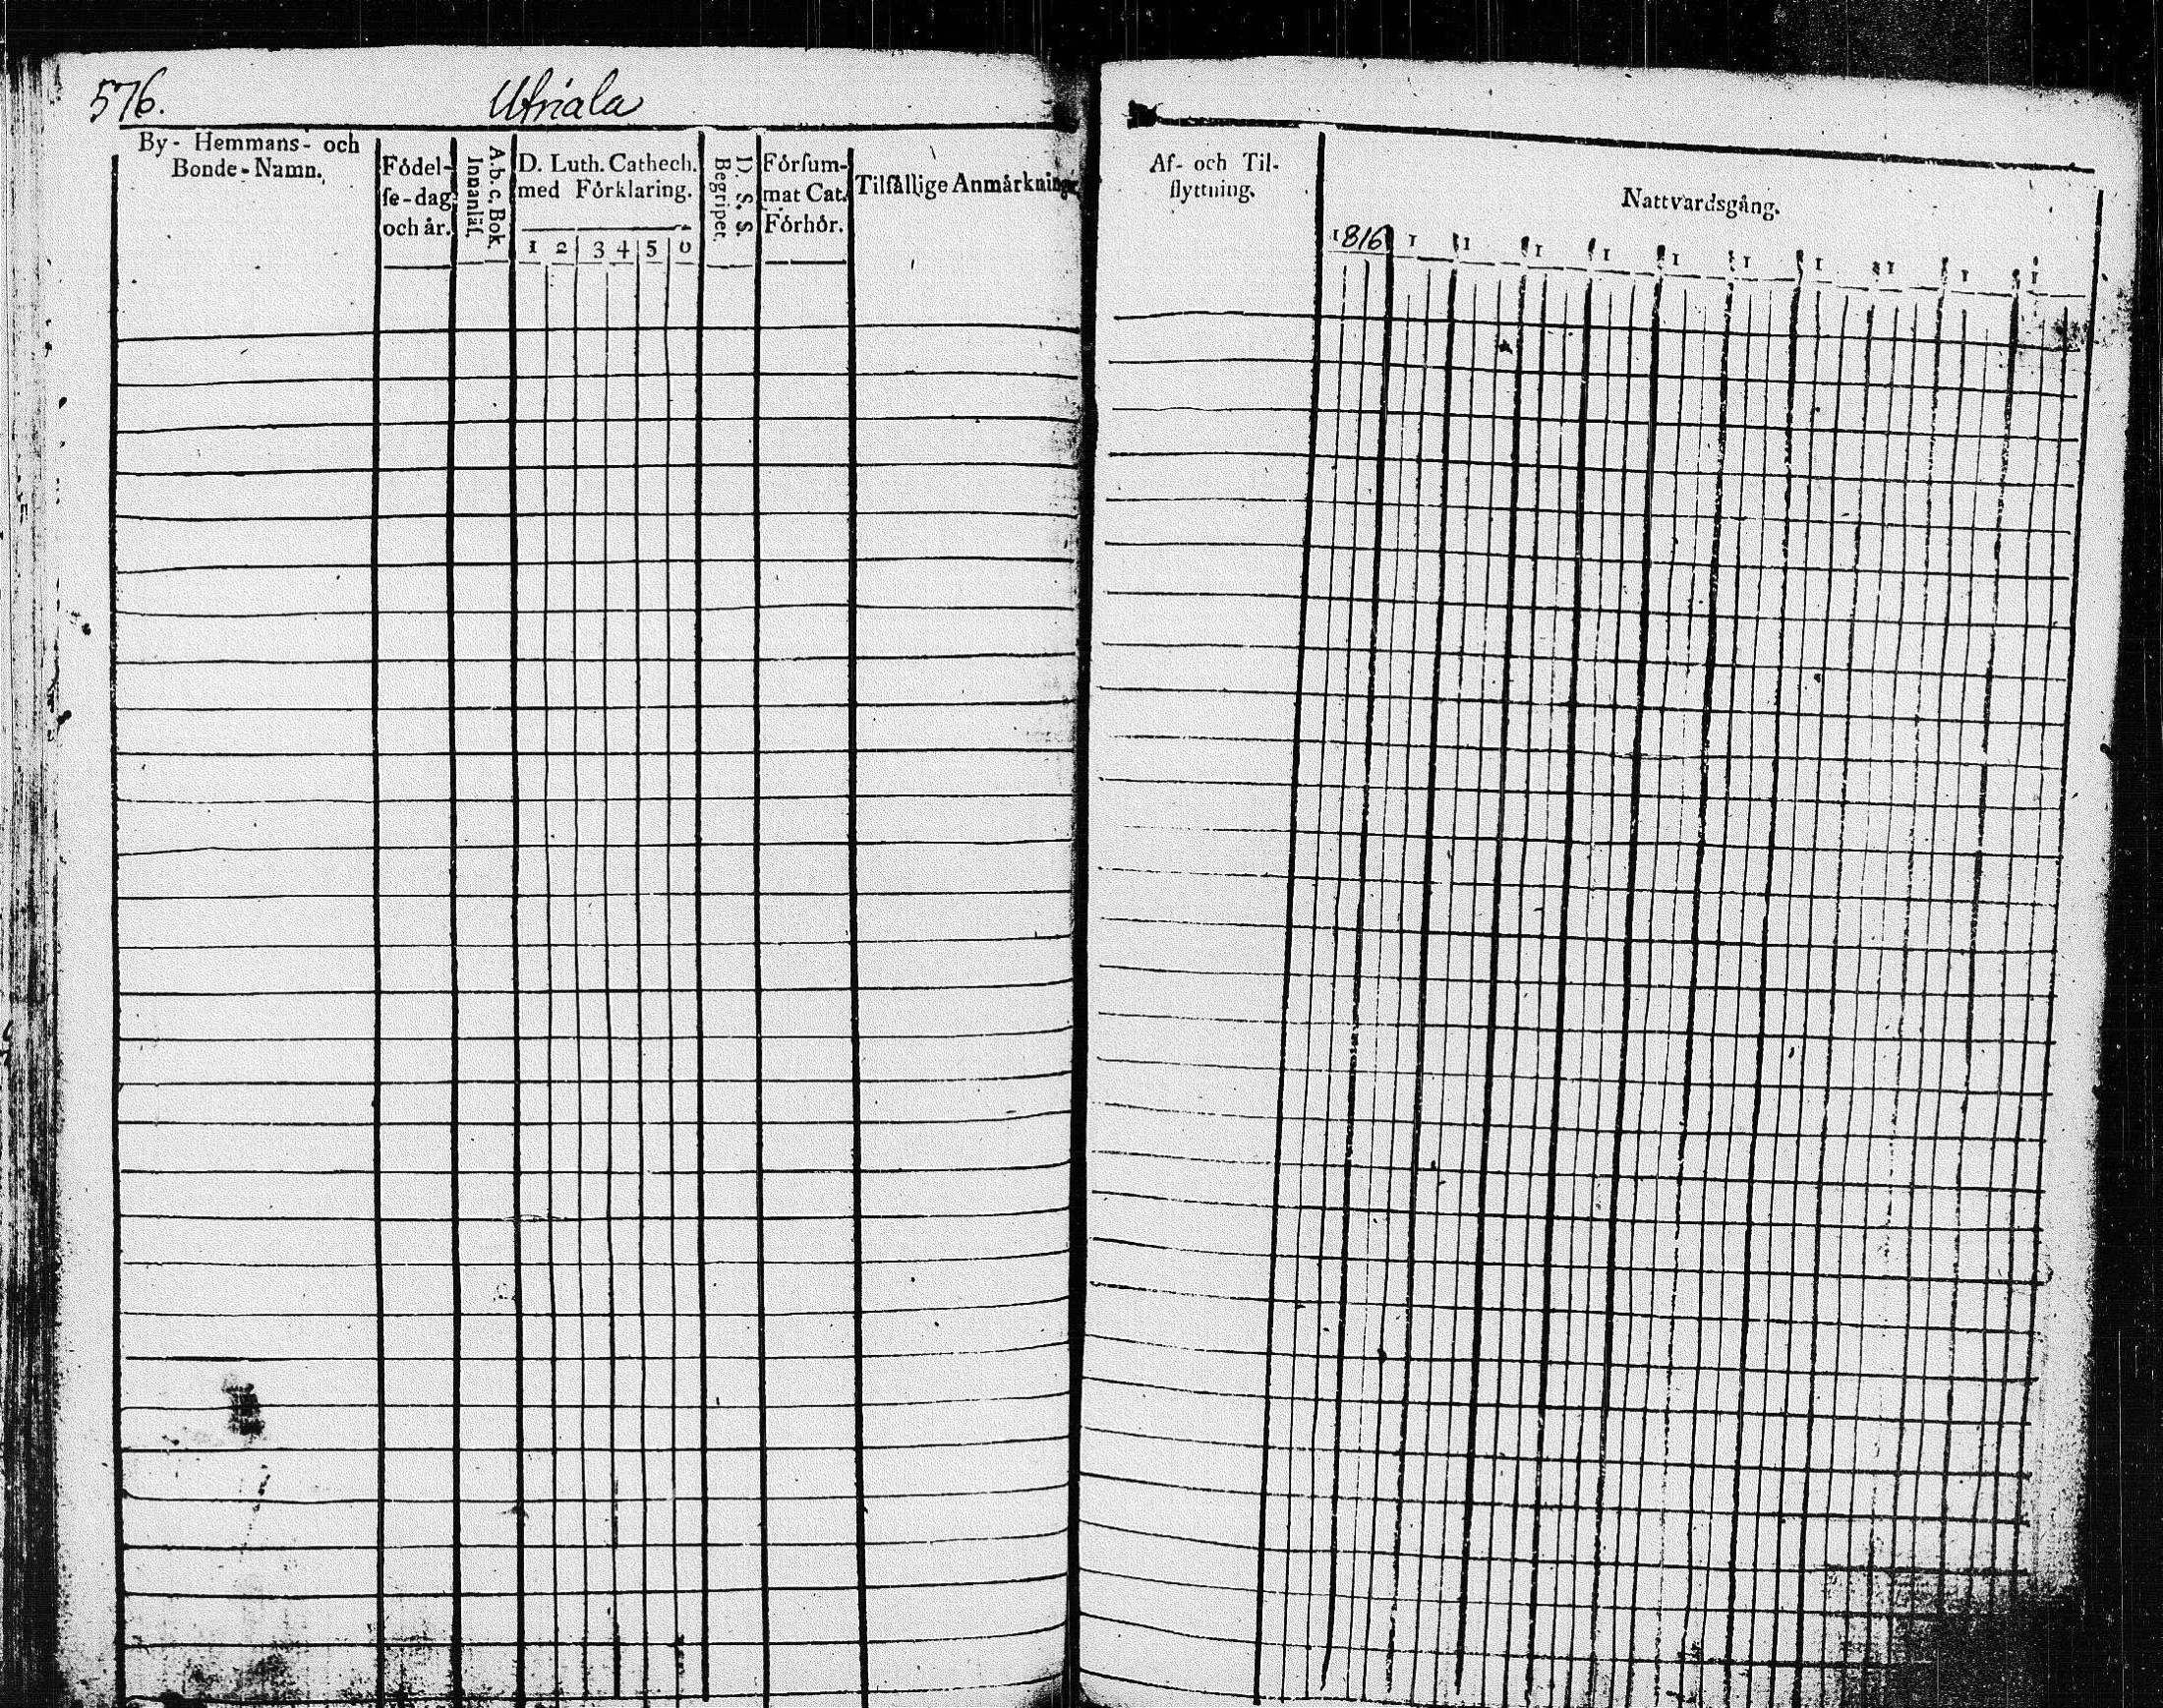 576.
Utriala
By- Hemmans- och
Bonde-Namn.
Födel-
se-dag
och år.
A.b.c. Bok.
Innanläs.
D. Luth. Cathech.
med Förklaring.
1 2 3 4 5 6
D. S. S.
Begripet.
Försum-
mat Cat.
Förhör.
Tilfällige Anmärkningar
Af- och Til-
flyttning.
Nattvardsgång.
1816 1 1 1 1 1 1 1 1 1 1